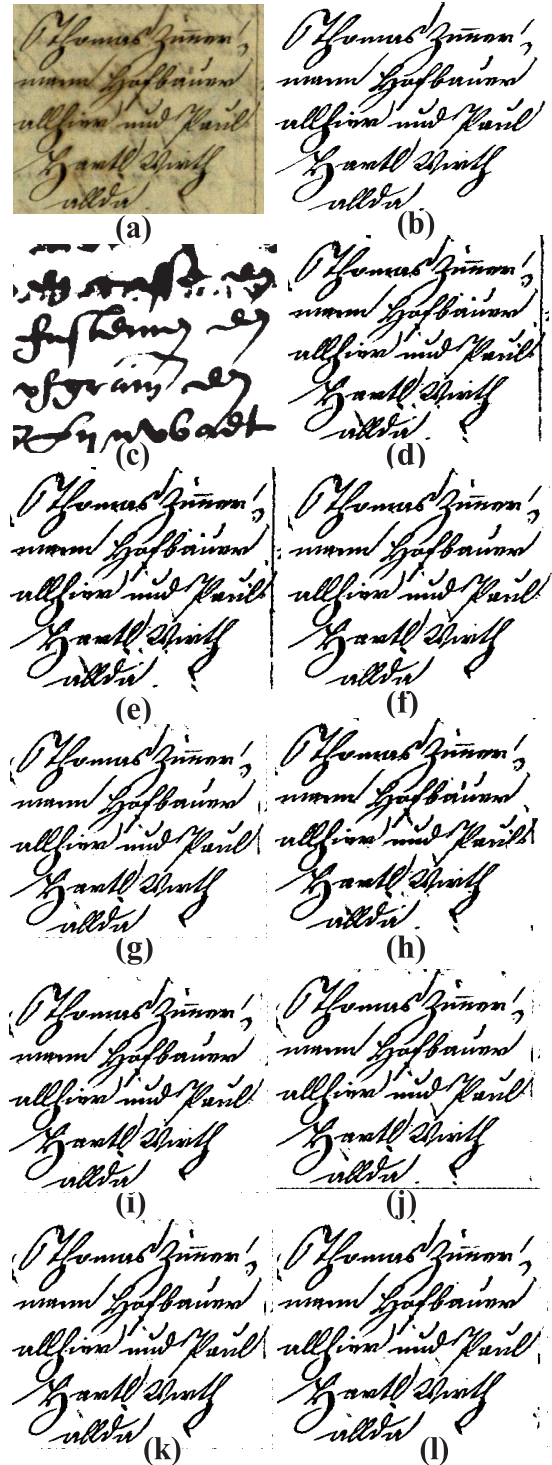 Thomas Zim̄er:
mann Hofbauer
allhier und Paul
Hartl Wirth
allda.
(a)
Thomas Zim̄er:
mann Hofbauer
allhier und Paul
Hartl Wirth
allda.
(b)
(c)
Thomas Zim̄er:
mann Hofbauer
allhier und Paul
Hartl Wirth
allda.
(d)
Thomas Zim̄er:
mann Hofbauer
allhier und Paul
Hartl Wirth
allda.
(e)
Thomas Zim̄er:
mann Hofbauer
allhier und Paul
Hartl Wirth
allda.
(f)
Thomas Zim̄er:
mann Hofbauer
allhier und Paul
Hartl Wirth
allda.
(g)
Thomas Zim̄er:
mann Hofbauer
allhier und Paul
Hartl Wirth
allda.
(h)
Thomas Zim̄er:
mann Hofbauer
allhier und Paul
Hartl Wirth
allda.
(i)
Thomas Zim̄er:
mann Hofbauer
allhier und Paul
Hartl Wirth
allda.
(j)
Thomas Zim̄er:
mann Hofbauer
allhier und Paul
Hartl Wirth
allda.
(k)
Thomas Zim̄er:
mann Hofbauer
allhier und Paul
Hartl Wirth
allda.
(l)